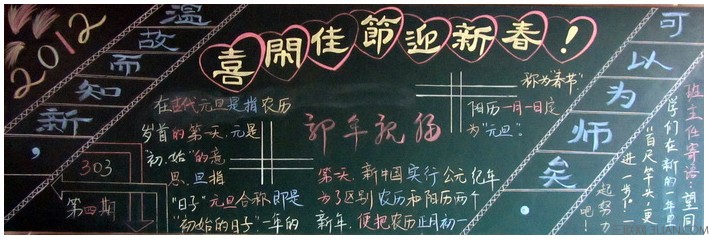 2012
温故而知新，
可以为师矣。
喜閙佳節迎新春！
303
第四期
在古代元旦是指农历
岁首的第一天.元是
"初.始"的意
思.旦指
"日子"元旦合称即是
"初始的日子"一年的
新年祝福
第一天.新中国实行公元纪年
为了区别农历和阳历两个
新年,便把农历正月初一
称为"春节"
阳历一月一日定
为"元旦".
班主任寄语:望同
学们在新的一年里
"百尺竿头,更
进一步"一
起努力
吧!